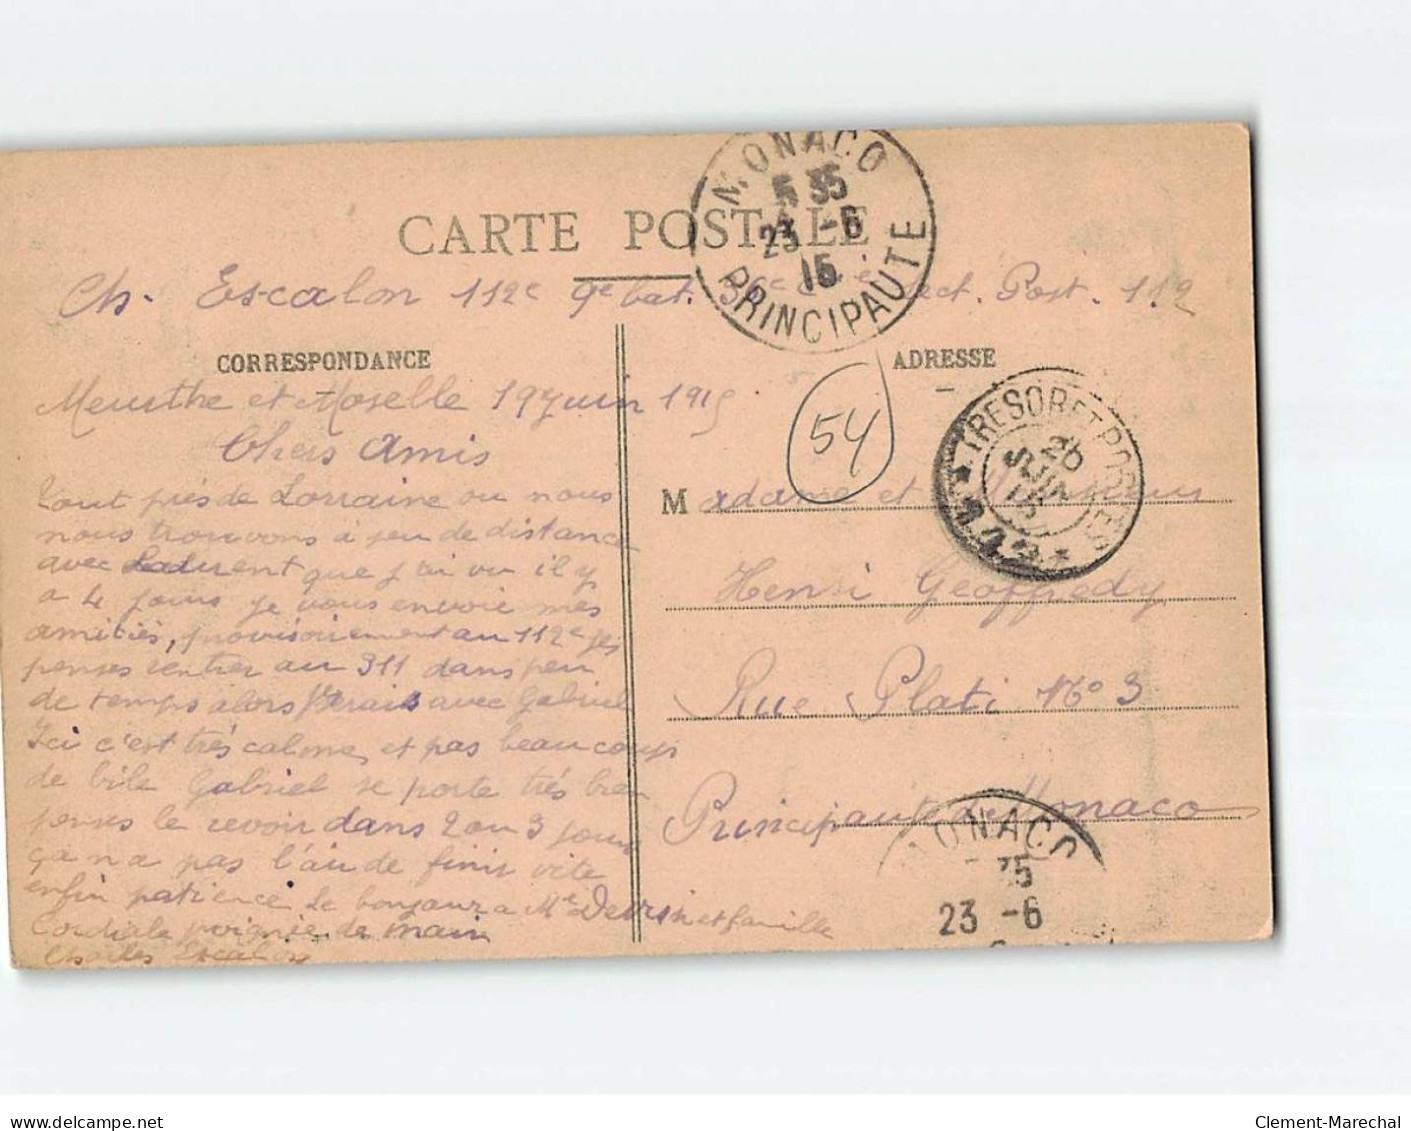 MONACO
35
23 -6
15
PRINCIPAUTE
CARTE POSTALE
Ch. Escalon 112e 9e bat. 36e Cie Sect. Post. 112
CORRESPONDANCE
ADRESSE
Meurthe et Moselle 19 Juin 1915
Chers Amis
Tout près de Lorraine ou nous
nous trouvons à peu de distance
avec Laurent que j'ai vu il y
a 4 jours je vous envoie mes
amitiés, provisoirement au 112e je
penses rentrer au 311 dans peu
de temps alors je serais avec Gabriel
Ici c'est très calme, et pas beaucoup
de bile Gabriel se porte très bien
penses le revoir dans 2 ou 3 jours
ça n a pas l'air de finir vite
enfin patience Le bonjour a Me et famille
Cordiale poignée de main
Charles Escalon
54
TRESOR ET POSTES
20
JUIN
15
*112*
Madame et Monsieur
Henri Geoffredy
Rue Plati No 3
Principauté de Monaco
MONACO
35
23 -6
delcampe.net
Clement-Marechal